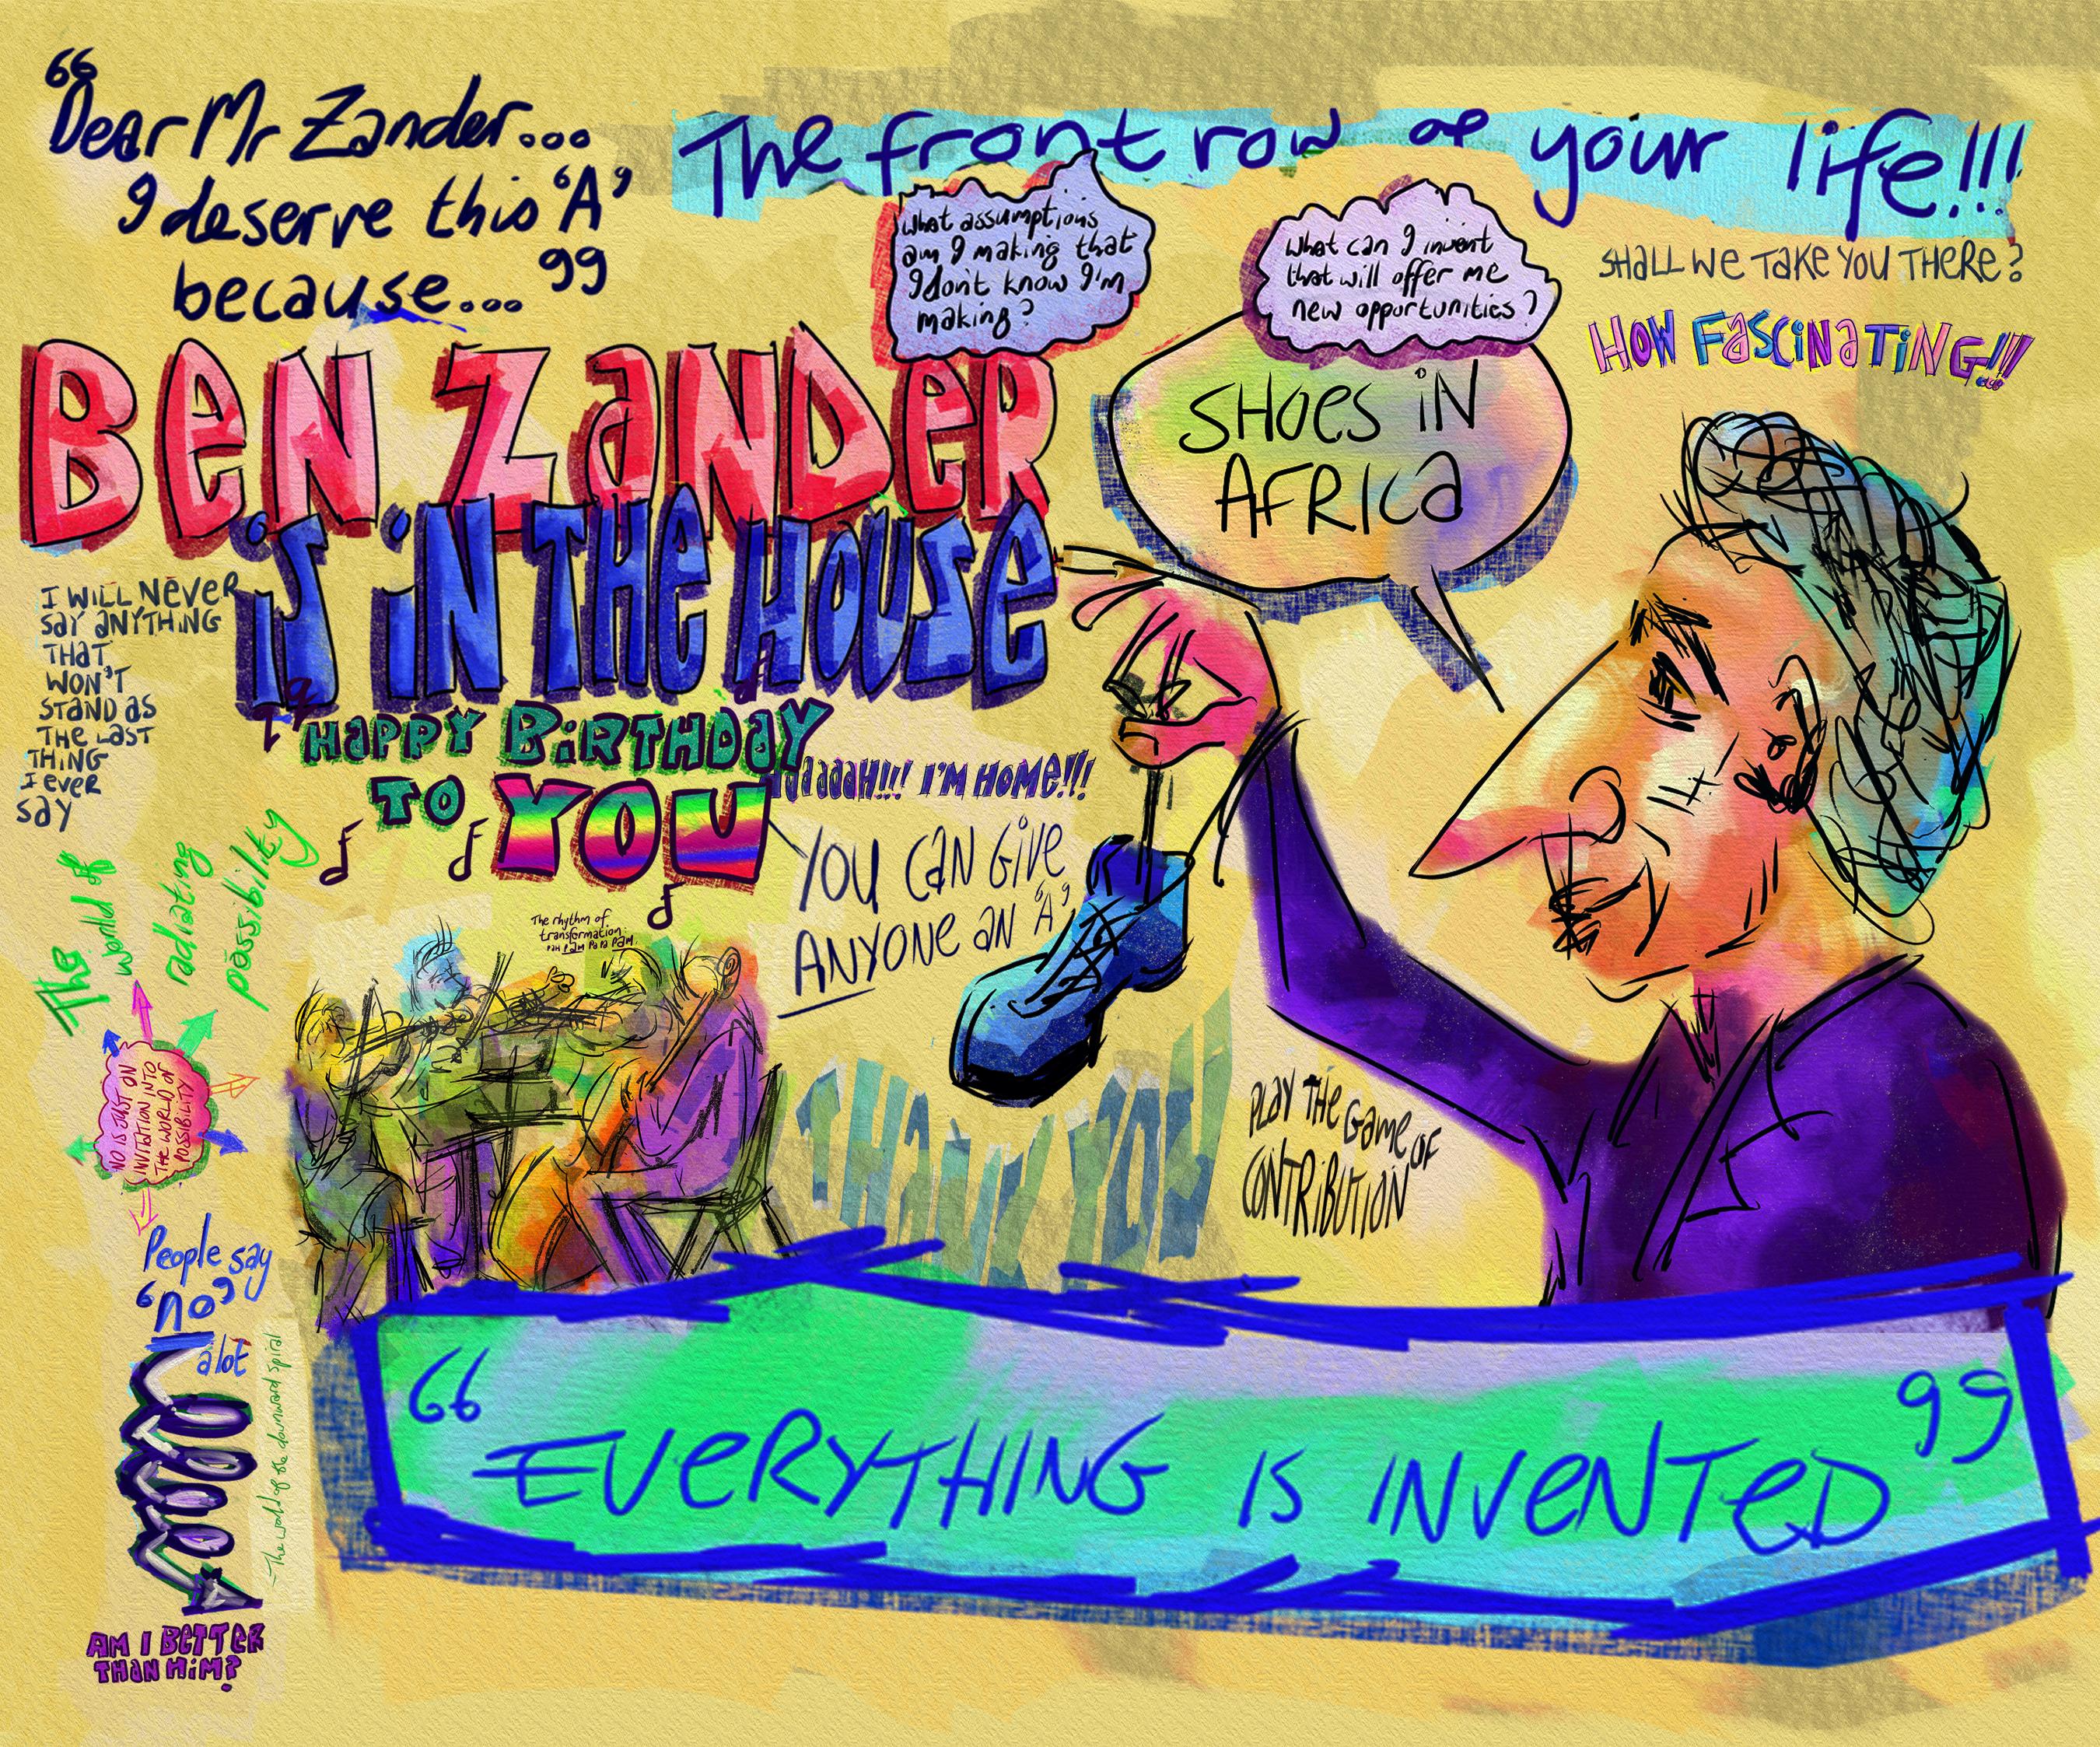 “Dear Mr Zander...
I deserve this ‘A’
because...”
The front row of your life!!!
SHALL WE TAKE YOU THERE?
HOW FASCINATING!!!
What assumptions
am I making that
I don't know I'm
making?
What can I invent
that will offer me
new opportunities?
SHOES IN
AFRICA
BEN ZANDER
IS IN THE HOUSE
HAPPY BIRTHDAY
TO YOU
I WILL NEVER
SAY ANYTHING
THAT
WON'T
STAND AS
THE LAST
THING
I EVER
SAY
I'M HOME!!!
YOU CAN GIVE
ANYONE AN ‘A’
The rhythm of
transformation
PAH PAM PA PA PAM
The
world of
radiating
possibility
NO IS JUST AN
INVITATION INTO
THE WORLD OF
POSSIBILITY
THANK YOU
PLAY THE GAME OF
CONTRIBUTION
People say
‘no’
a lot
- The world of the downward spiral
AM I BETTER
THAN HIM?
“EVERYTHING IS INVENTED”